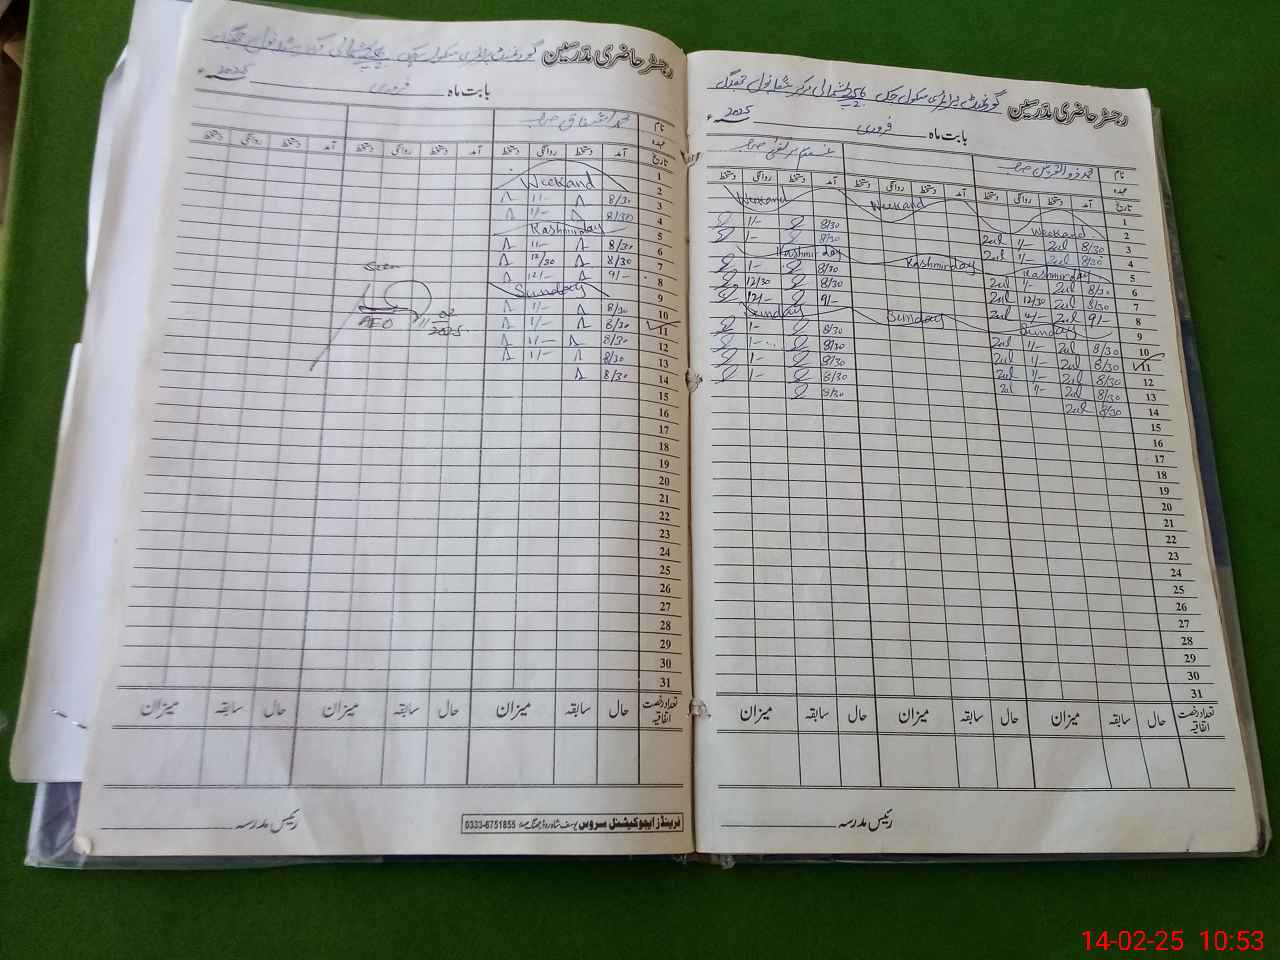 رجسٹر حاضری مدرسین گورنمنٹ پرائمری سکول چک
بابت ماہ فروری 2025ء
نام
عہدہ
تاریخ آمد دستخط روانگی دستخط آمد دستخط روانگی دستخط آمد دستخط روانگی دستخط
1 Weekand Weekand
2 Weekand
3 8/30 1/- 8/30 1/-
4 8/30 1/- 8/30 1/-
5 Kashmirday Kashmirday Kashmirday
6 8/30 1/- 8/30 1/-
7 8/30 12/30 8/30 12/30
8 9/- 12/- 9/- 12/-
9 Sunday Sunday Sunday
10 8/30 1/- 8/30 1/-
11 8/30 1/- 8/30 1/-
12 8/30 1/- 8/30 1/-
13 8/30 1/- 8/30 1/-
14 8/30 8/30
15
16
17
18
19
20
21
22
23
24
25
26
27
28
29
30
31
تعداد رخصت اتفاقیہ حال سابقہ میزان حال سابقہ میزان حال سابقہ میزان
رئیس مدرسہ
رجسٹر حاضری مدرسین گورنمنٹ پرائمری سکول چک
بابت ماہ فروری 2025ء
نام محمد اشفاق صاحب
عہدہ
تاریخ آمد دستخط روانگی دستخط آمد دستخط روانگی دستخط آمد دستخط روانگی دستخط
1
2 Weekand
3 8/30 1/-
4 8/30 1/-
5 Kashmirday
6 8/30 1/-
7 8/30 12/30
8 9/- 12/-
9 Sunday
10 8/30 1/-
11 8/30 1/-
12 8/30 1/-
13 8/30 1/-
14 8/30
15
16
17
18
19
20
21
22
23
24
25
26
27
28
29
30
31
Seen
AEO 11/02
2025
تعداد رخصت اتفاقیہ حال سابقہ میزان حال سابقہ میزان حال سابقہ میزان
فرینڈز ایجوکیشنل سروس یوسف شاہ روڈ جھنگ صدر 0333-6751855
رئیس مدرسہ
14-02-25 10:53